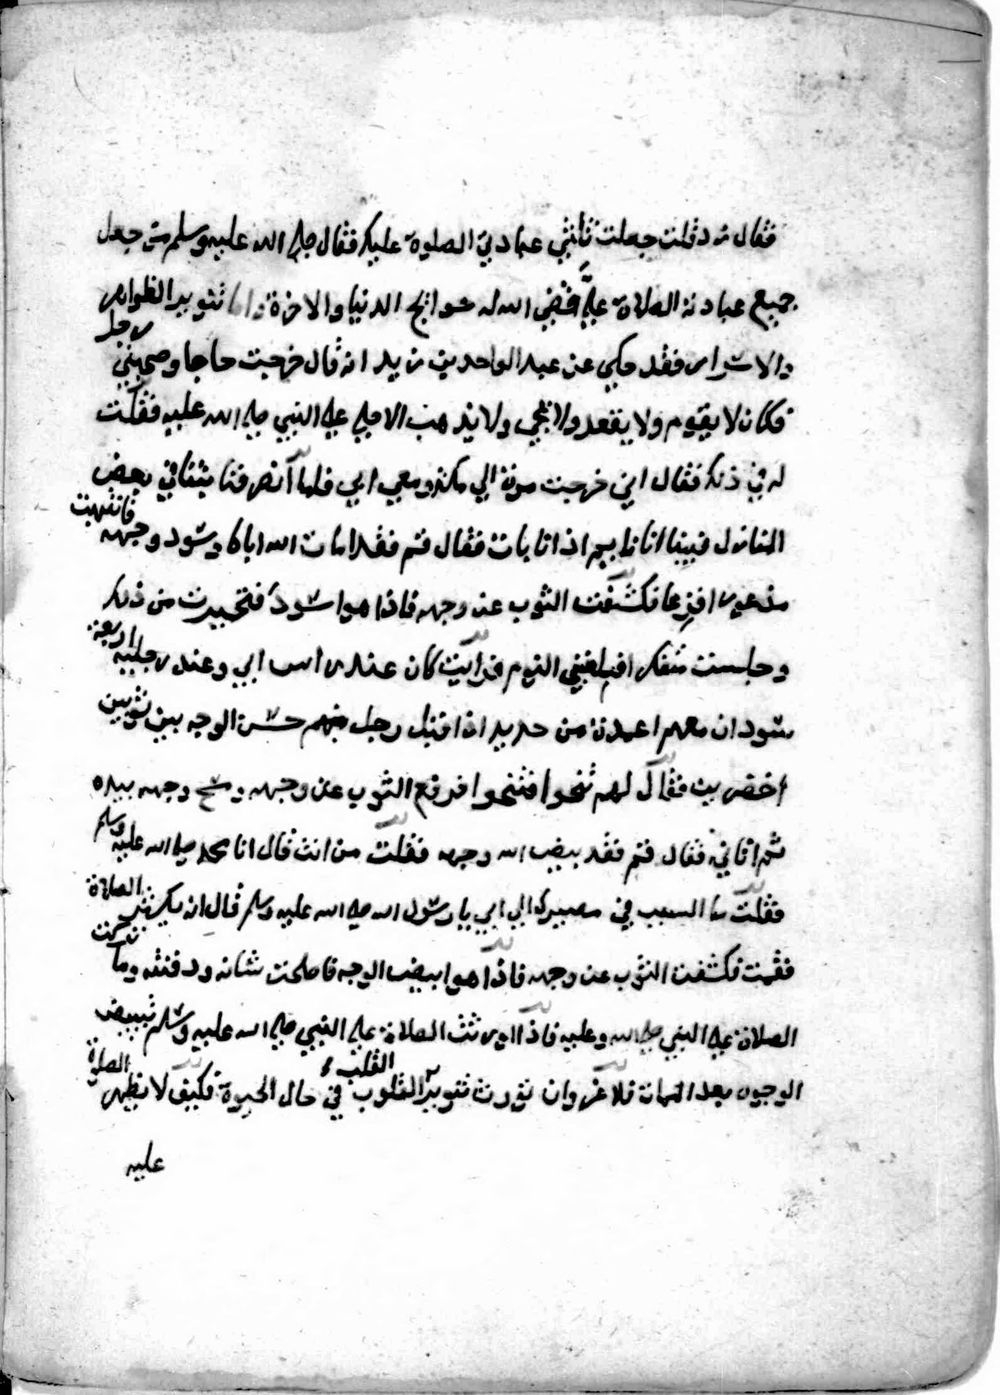 فقال زد قلت جعلت ثلثي عبادتي الصلوة عليك فقال صلى الله عليه وسلم من جعل
جميع عبادته الصلاة عليَّ قضى الله له حوايج الدنيا والاخرة واما تنوير الظواهر
والاسرار فقد حكي عن عبد الواحد بن زيد انه قال خرجت حاجا وصحبني رجل
فكان لا يقوم ولا يقعد ولا يجي ولا يذهب الا صلى على النبي صلى الله عليه فقلت
له في ذلك فقال اني خرجت مرة الي مكة ومعي ابي فلما انصرفنا بتنا في بعض
المنازل فبينا انا نايم اذ اتا بات فقال قم فقد امات الله اباك وسود وجهه فانتبهت
مذعورا فزعا فكشفت الثوب عن وجهه فاذا هو اسود فتحيرت من ذلك
وجلست متفكرا فبلغني النوم فرايت كان عند راس ابي وعند رجليه اربعة
سودان معهم اعمدة من حديد اذ اقبل رجل منهم حسن الوجه بين ثوبين
اخضرين فقال لهم تنحوا فتنحوا فرفع الثوب عن وجهه ومسح وجهه بيده
ثم اتاني فقال قم فقد بيض الله وجهه فقلت من انت قال انا محمد صلى الله عليه وسلم
فقلت ما السبب في مصيرك الي ابي يا رسول الله صلى الله عليه وسلم قال انه يكثر الصلاة
فقمت فكشفت الثوب عن وجهه فاذا هو ابيض الوجه فاصلحت شانه ودفنته وما تركت
الصلاة على النبي صلى الله وعليه فاذا اورثت الصلاة على النبي صلى الله عليه وسلم تبييض
الوجوه بعد الممات فلا غر وان تورث تنوير القلوب القلب في حال الحيوة فكيف لا تظهر الصلوة
عليه